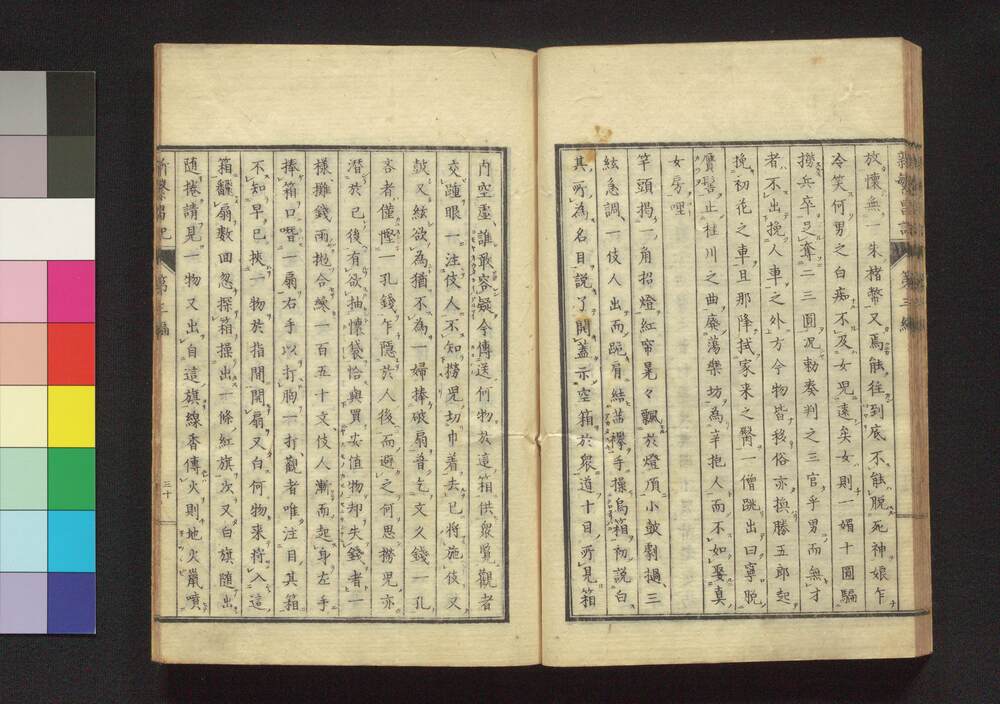 放懷無一朱楮幣又焉能往到底不能脫死神娘乍
冷笑何男之白痴不及女兒遠矣女則一媚十圓騙
撈兵卒足奪二三圓况勅奏判之三官乎男而無才
者不出挽人車之外方今物皆移俗亦換勝五郎起
挽初花之車且那降拭家来之臀一僧跳出曰寧脫
贋髻止桂川之曲庵蕩樂坊為辛抱人而不如娶真
女房哩
竿頭揭一角招燈紅帘晃々飄於燈頂小皷劇撾三
絃急調一伎人出而跪肩結茜襷手操烏箱初說白
其所為名目說了開蓋示空箱於衆道十目所見箱
内空虛誰敢容疑今傳送何物於這箱供衆覽觀者
交踵眼一注伎人不知撈兒切巾着去已將施伎又
皷又絃欲為猶不為一婦捧破扇普乞文久錢一孔
吝者僅慳一孔錢乍隱於人後而避之何思撈兒亦
潛於已後有欲抽懷袋恰與買安值物却失錢者一
樣攤錢雨拋合繰一百五十文伎人漸而起身左手
捧箱口喈一扇右手以打胸一打觀者唯注目其箱
不知早已挾一物於指間開扇又白何物来将入這
箱飜扇數回忽探箱操出一條紅旗次又白旗随出
随捲請見一物又出自這旗線香傳火則地火鼠噴
第三編
三十